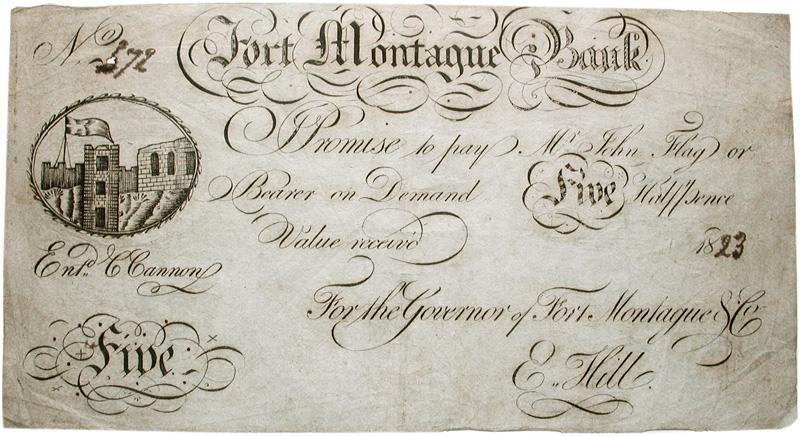 No. 372 Fort Montague Bank
I Promise to pay Mr. John Flag or
Bearer on Demand Five Halfpence
Value receiv'd 1823
Entd. C Cannon
For the Governor of Fort Montague & Co
Five E. Hill.